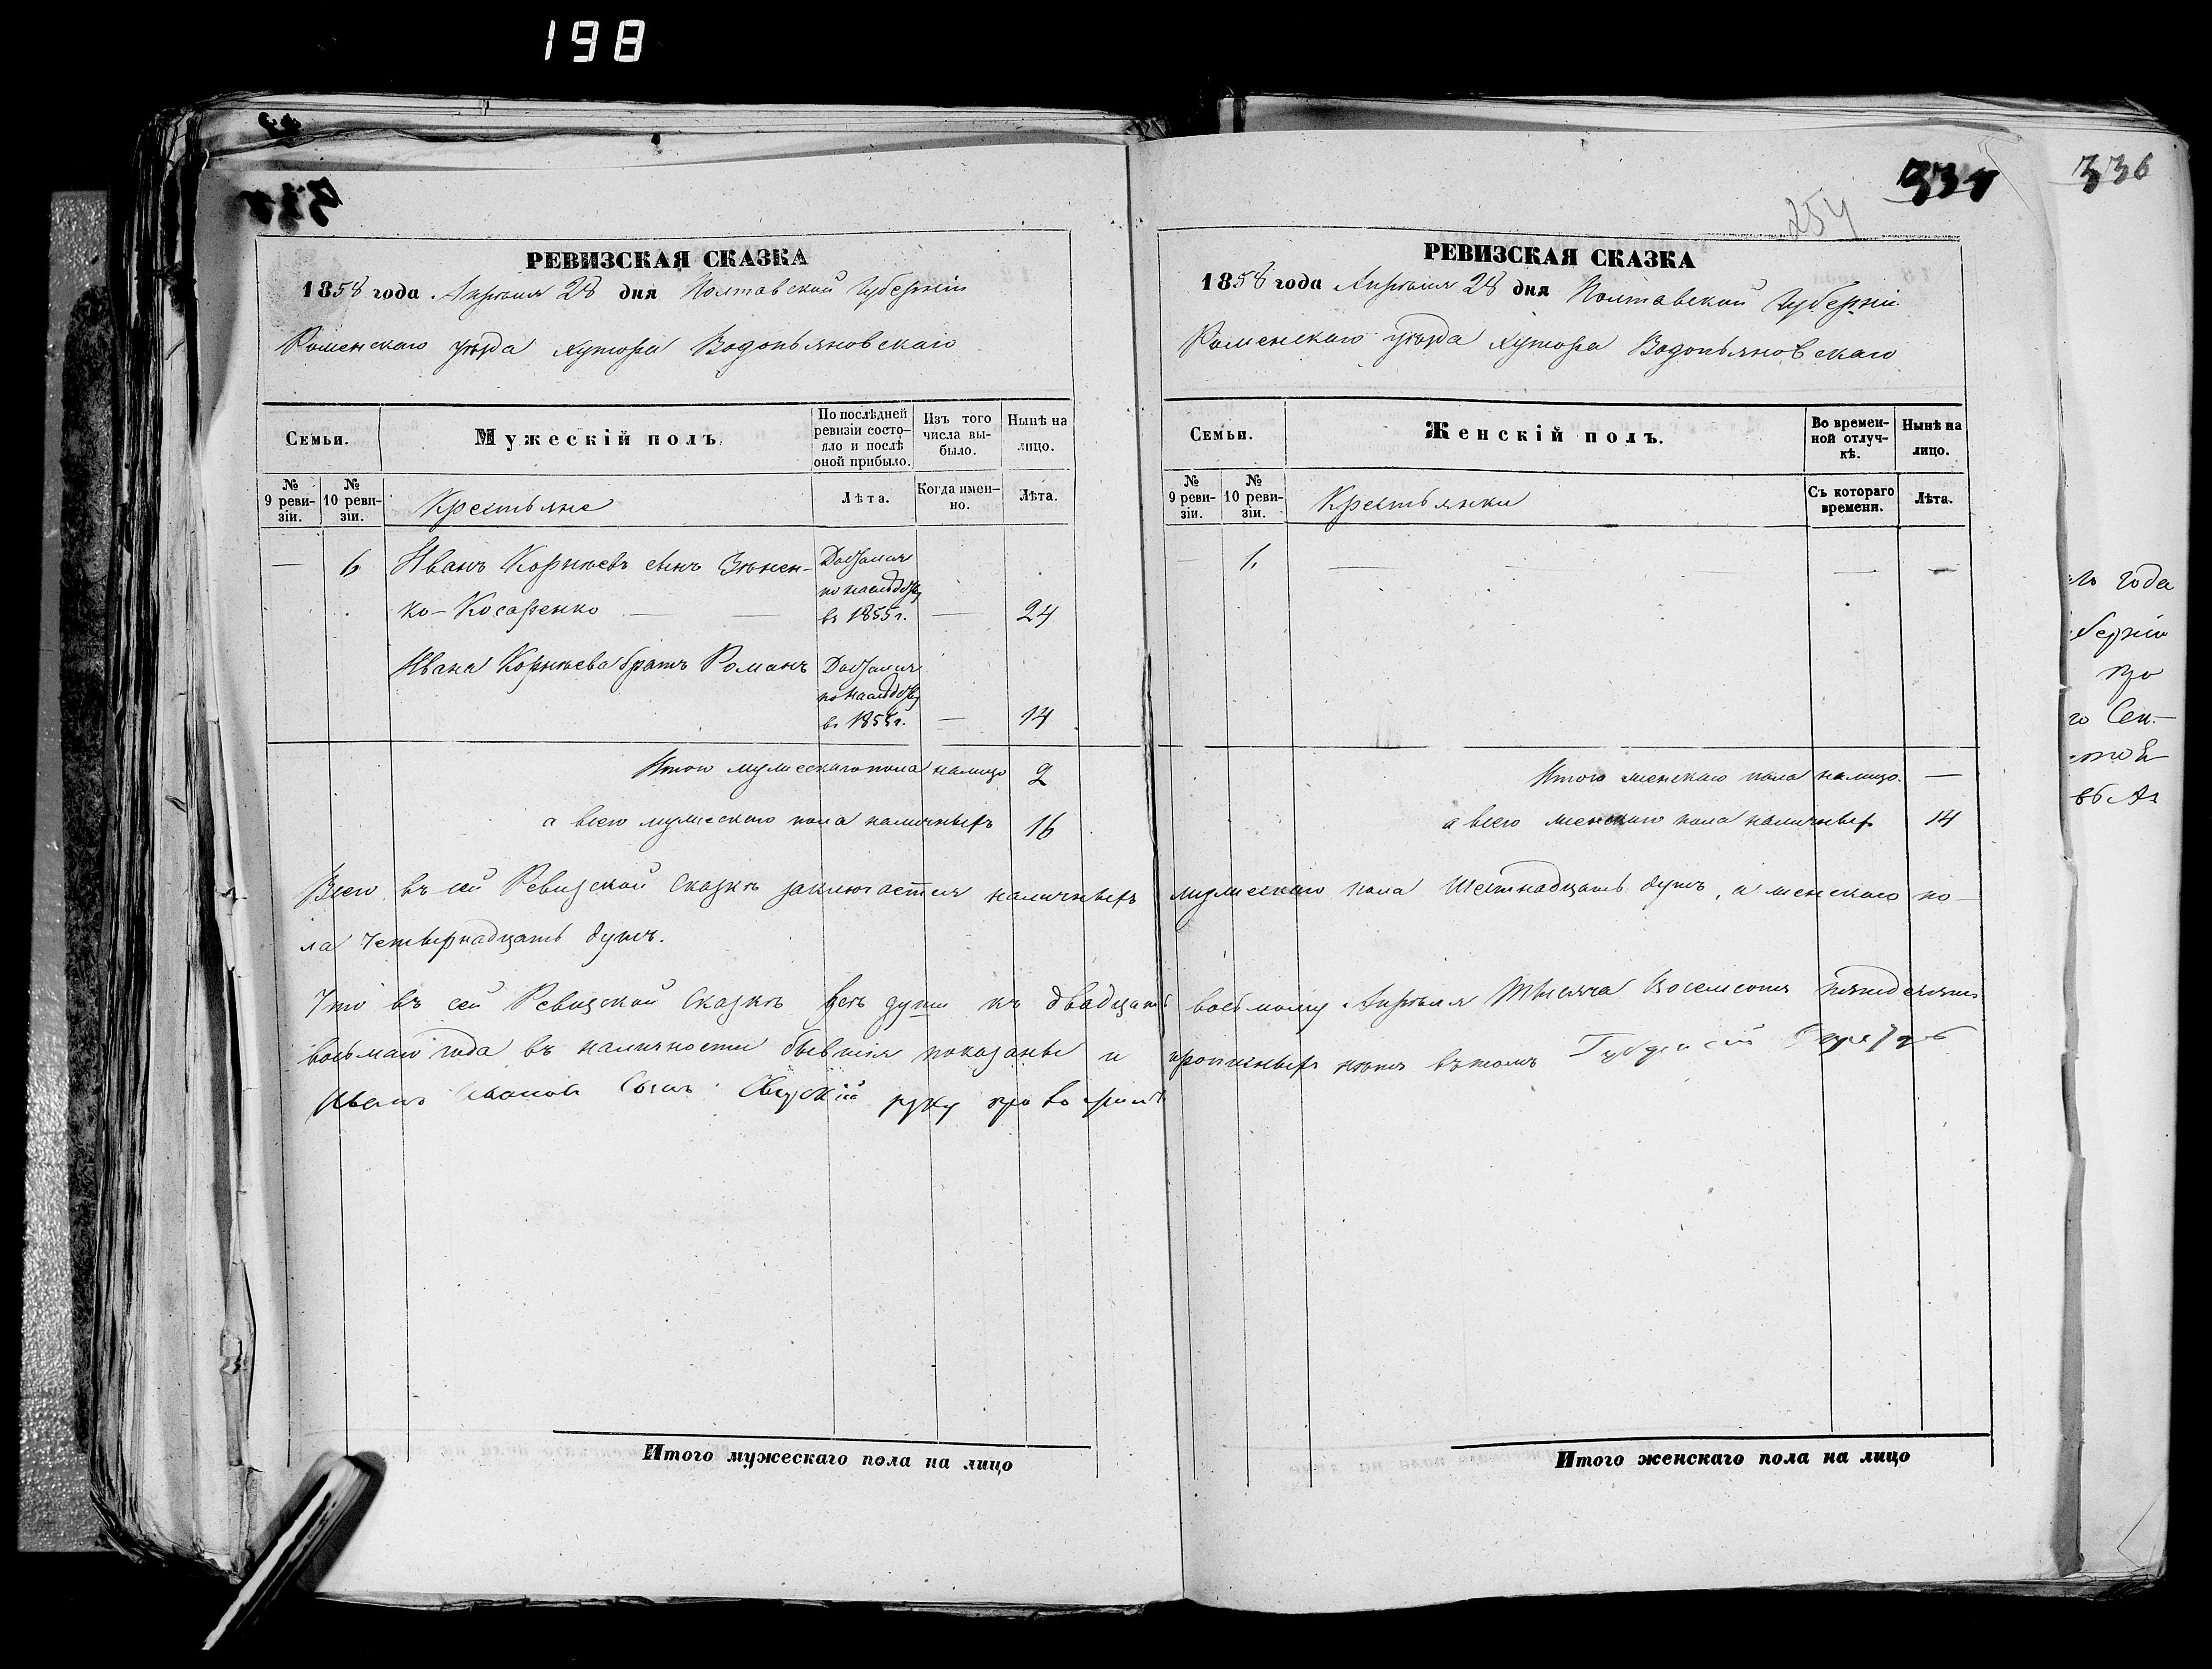 198
335
254
336
РЕВИЗСКАЯ СКАЗКА
1858 года Апрѣля 28 дня Полтавской Губерніи
Роменскаго уѣзда хутора Водопьяновскаго
Семьи.
Мужескій полъ.
По послѣдней ревизіи состо-
яло и послѣ
оной прибыло.
Изъ того
числа вы-
было.
Нынѣ на
лицо.
№
9 реви-
зіи.
№
10 реви-
зіи.
Крестьяне
Лѣта.
Когда имен-
но.
Лѣта.
— 6 Иванъ Корнѣевъ сынъ Зѣнен- Достался
по наслѣдству
ко-Косаренко — — въ 1855 г. — 24
Ивана Корнѣева братъ Романъ Достался
по наслѣдству
въ 1855 г. — 14
Итого мужескаго пола налицо 2
а всего мужескаго пола наличныхъ 16
РЕВИЗСКАЯ СКАЗКА
1858 года Апрѣля 28 дня Полтавской Губерніи
Роменскаго уѣзда хутора Водопьяновскаго
Семьи.
Женскій полъ.
Во времен-
ной отлуч-
кѣ.
Нынѣ на
лицо.
№
9 реви-
зіи.
№
10 реви-
зіи.
Крестьянки
Съ котораго
времени.
Лѣта.
— — — — —
Итого женскаго пола налицо. —
а всего женскаго пола наличныхъ 14
Всего въ сей Ревизской Сказкѣ заключается наличныхъ мужескаго пола Шестнадцать душъ, а женскаго по-
ла Четырнадцать душъ.
Что въ сей Ревизской Сказкѣ всѣ души къ двадцать восьмому Апрѣля Тысяча Восемсотъ пятдесятъ
восьмаго года въ наличности бывшія показаны и прописныхъ нѣтъ въ томъ
Иванъ Ивановъ Сынъ руку
Итого мужескаго пола на лицо
Итого женскаго пола на лицо
года